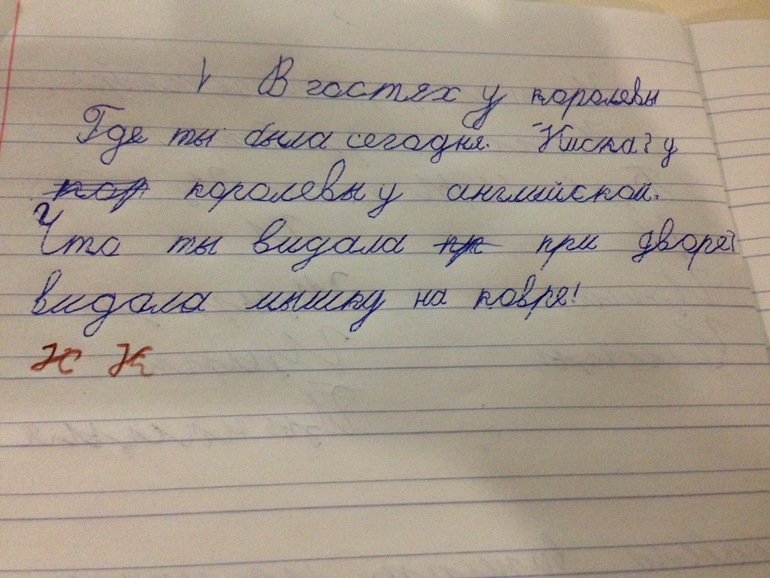 1 В гостях у королевы
Где ты была сегодня. Киска? у
кор королевы у английской.
Что ты видала пр при дворе?
видала мышку на ковре!
К К